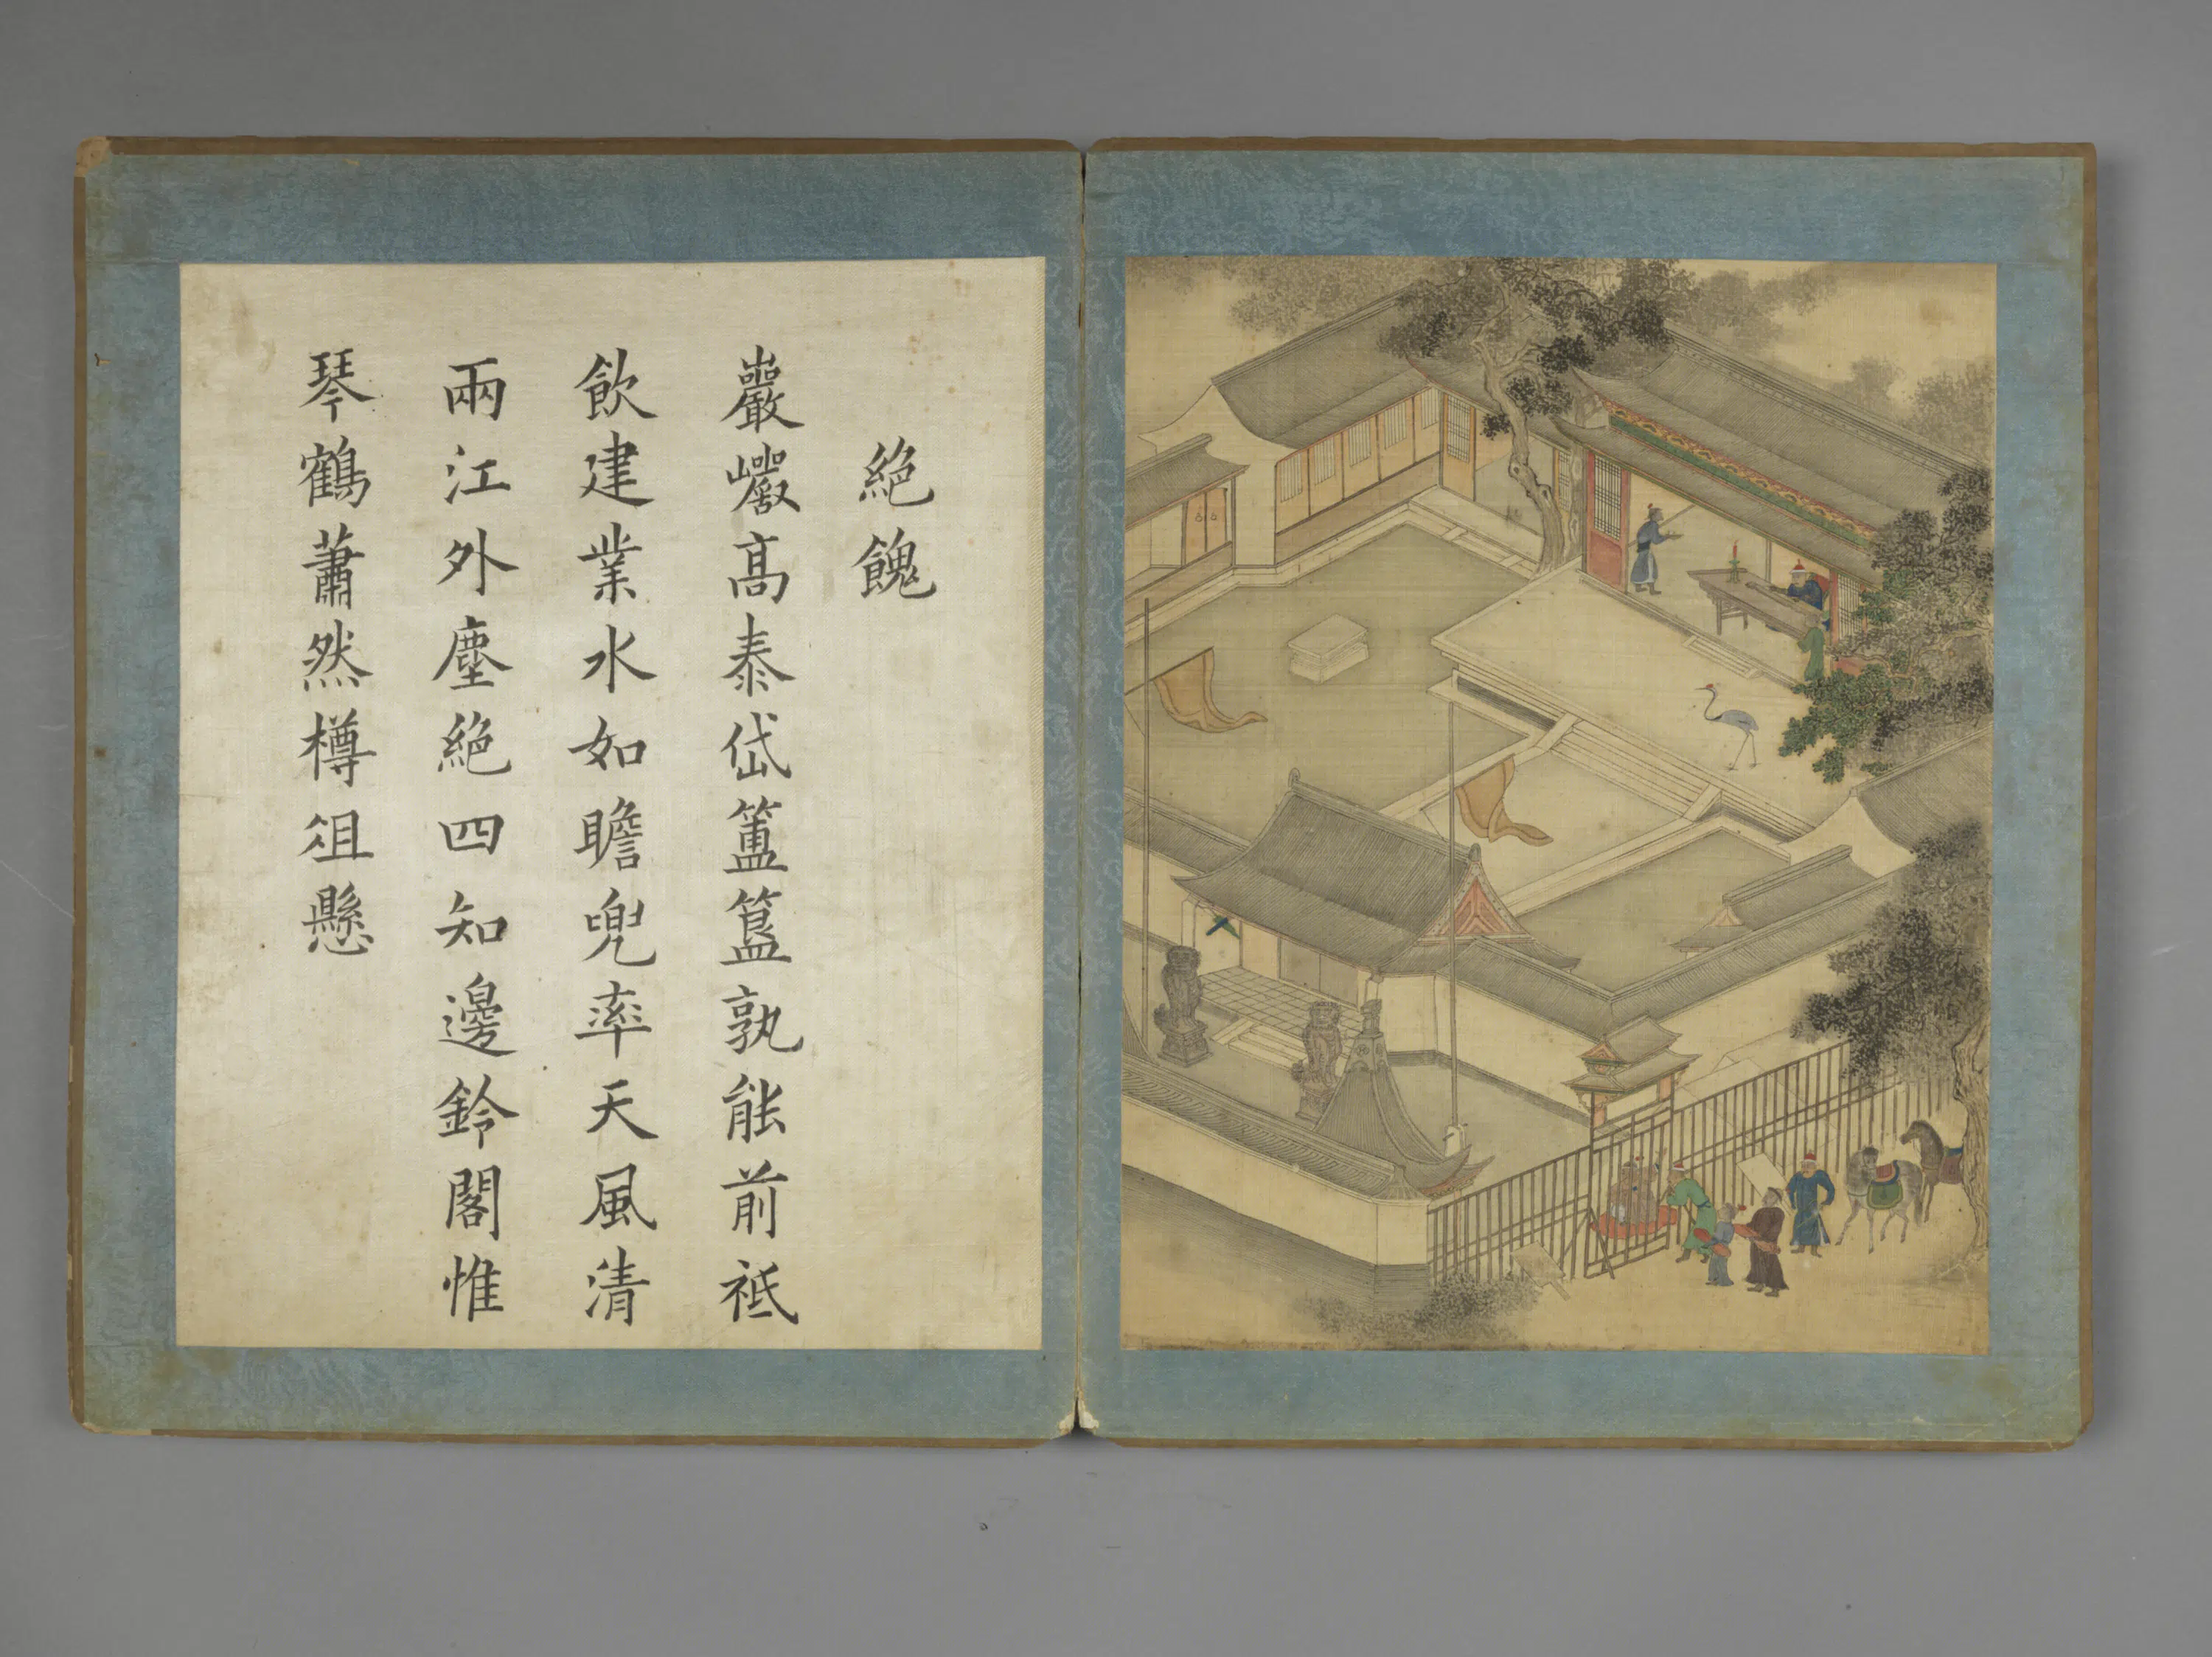 絶餽
巖巗髙泰岱簠簋孰能前祗
飲建業水如瞻兜率天風清
兩江外塵絶四知邊鈴閣惟
琴鶴蕭然樽俎懸